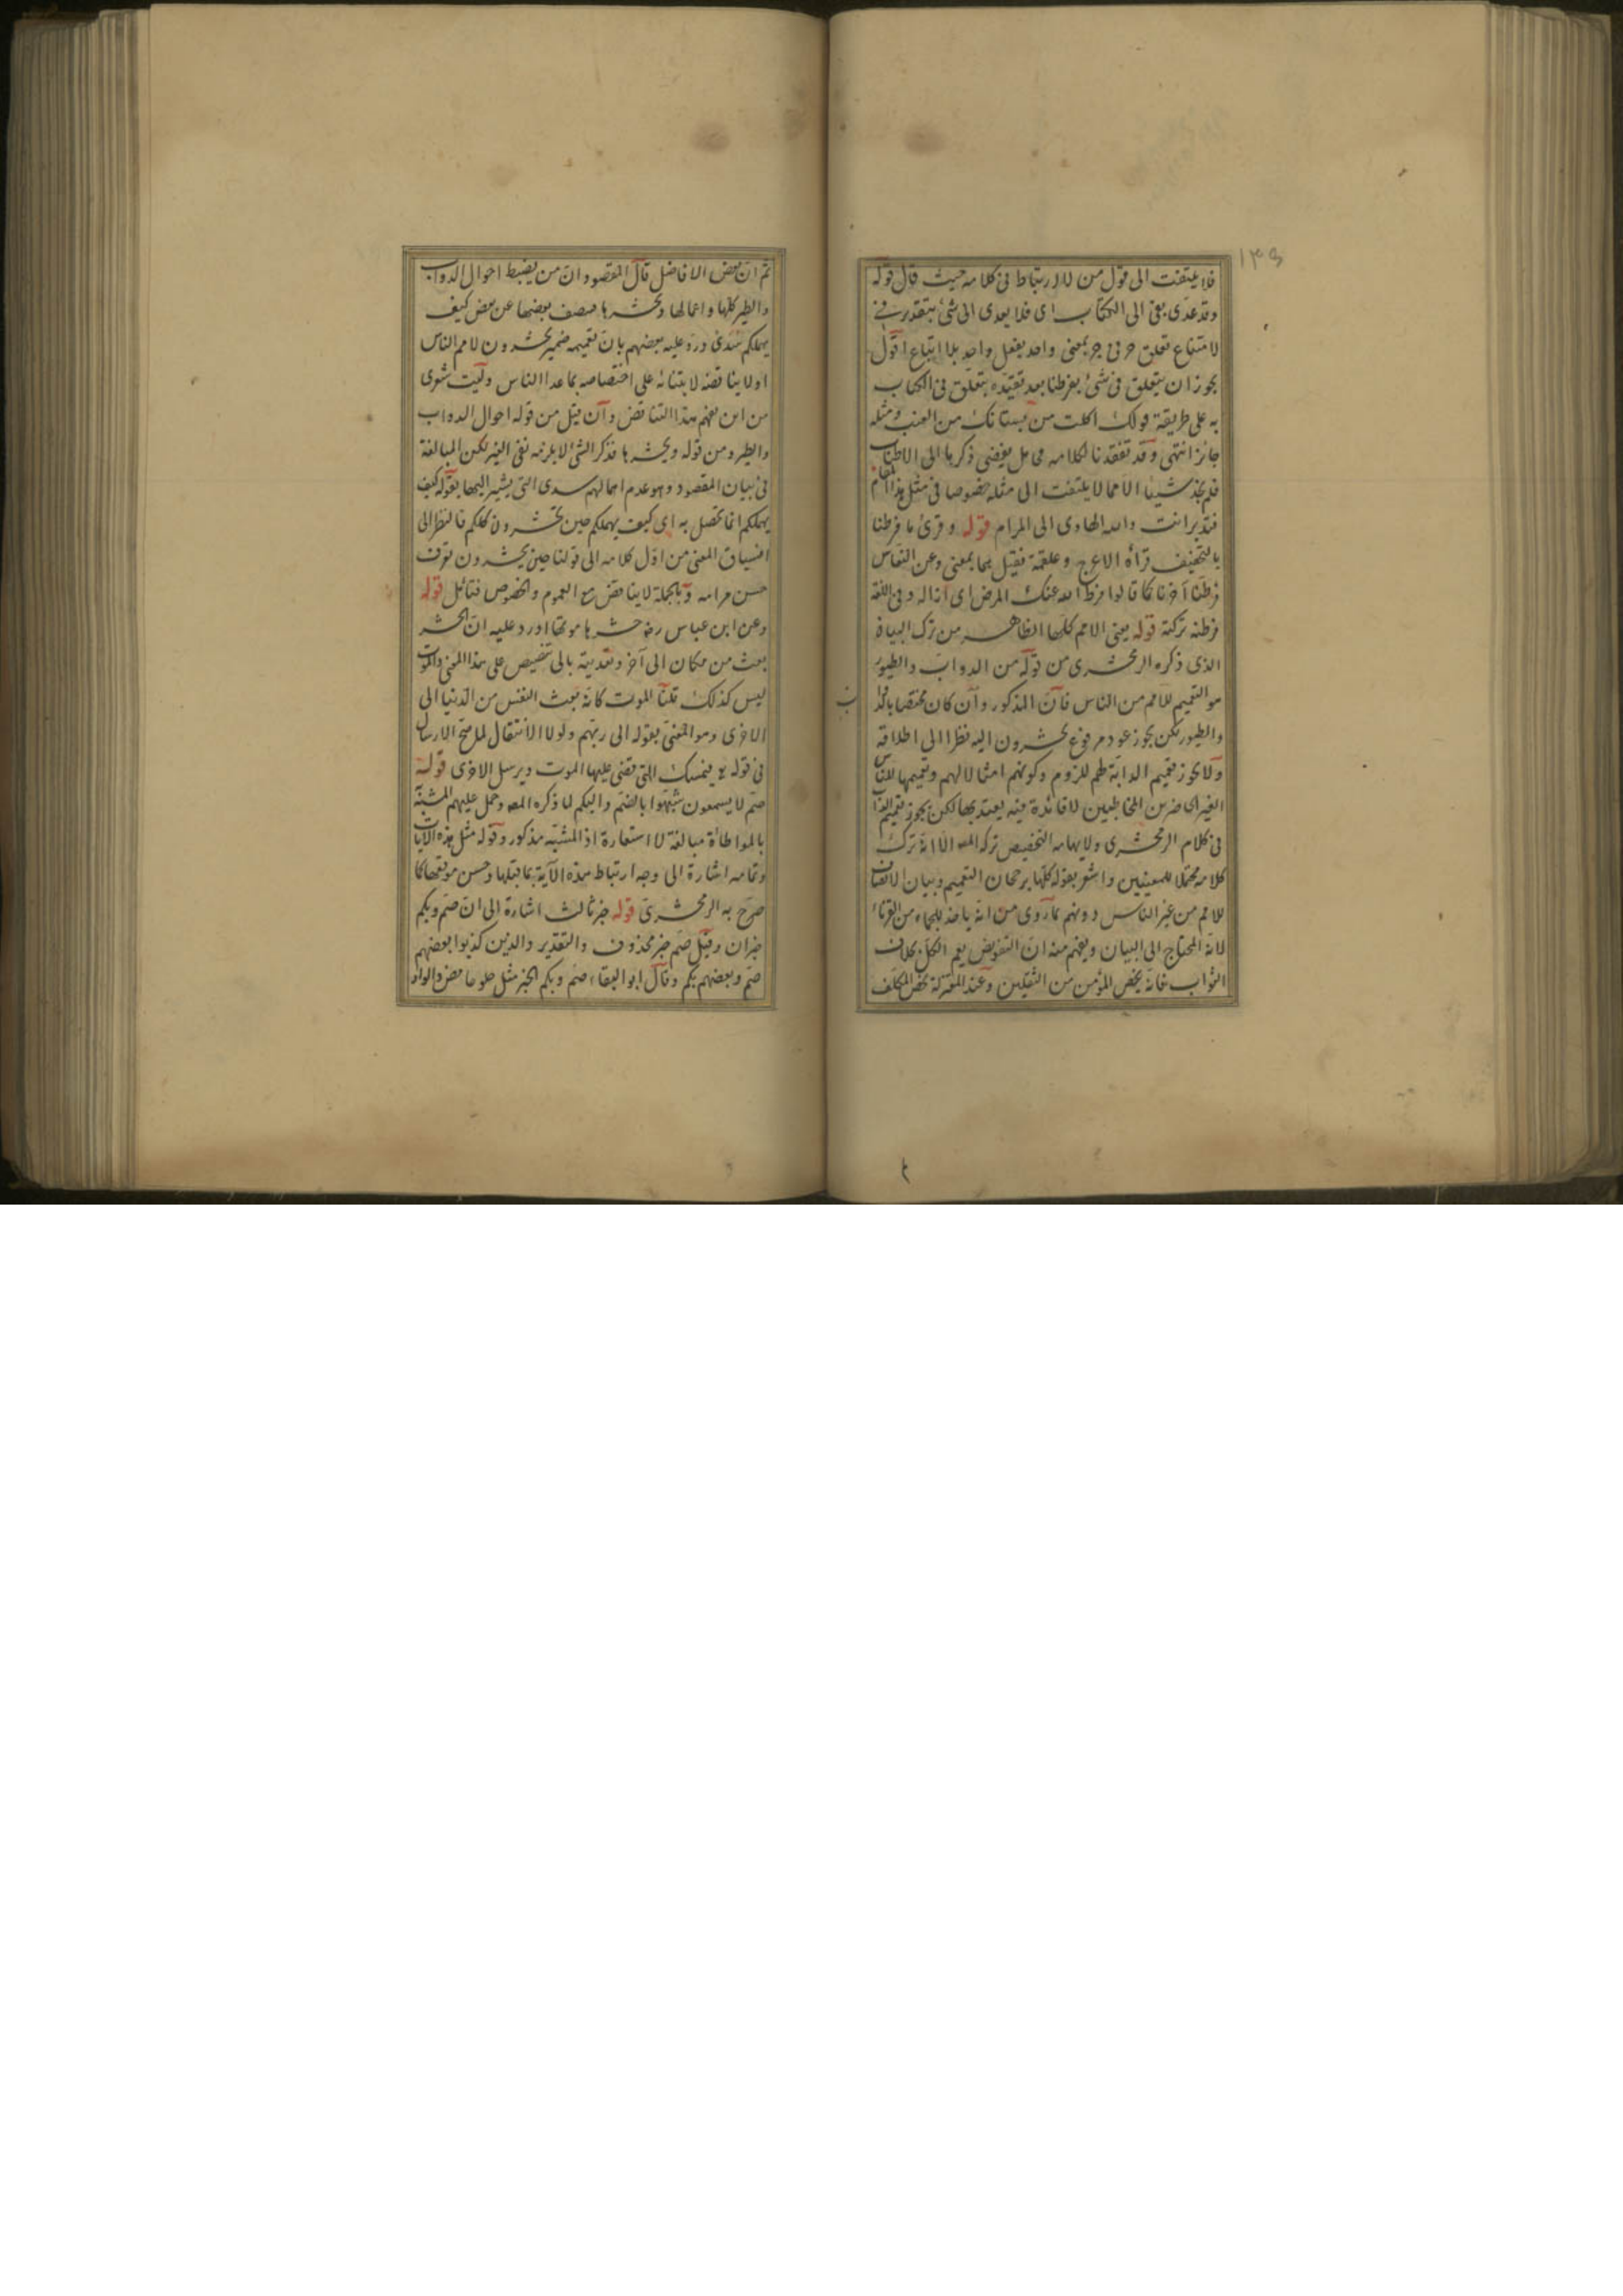 ١٣٥
فلا يلتفت الى قول من لا ارتباط فى كلامه حيث قال قوله
وقد عدى بفى الى الكتاب اى فلا يعدى الى شئ بتقدير فى
لامتناع تعلق حرفى جر بمعنى واحد بفعل واحد بلا اتباع اقول
يجوز ان يتعلق فى شئ بفرطنا بعد تقيده بتعلق فى الكتاب
به على طريقة قولك اكلت من بستانك من العنب ومثله
جائز انتهى وقد تفقدنا لكلامه محامل يفضى ذكرها الى الاطناب
فلم نجد شيئا الا مما لا يلتفت الى مثله خصوصا فى مثل هذا المقام
فتدبر انت والله الهادى الى المرام قوله وقرئ ما فرطنا
بالتخفيف قرأه الاعرج وعلقمة فقيل هما بمعنى وعن النقاس
فرطنا اخرنا كما قالوا فرط الله عنك المرض اى ازاله وفى اللغة
فرطته تركته قوله يعنى الامم كلها الظاهر من ترك البيان
الذى ذكره الزمخشرى من قوله من الدواب والطيور
هو التعميم للامم من الناس فان المذكور وان كان مختصا بالدواب
والطيور لكن يجوز عود مرفوع يحشرون اليه نظرا الى اطلاقه
ولا يجوز تعميم الدابة لهم للزوم وكونهم امثالا لهم وتعميمها للناس
الغير الحاضرين المخاطبين لا فائدة فيه يعتد بها لكن يجوز تعميم
فى كلام الزمخشرى ولايهامه التخصيص تركه المص الا انه ترك
كلامه محتملا للمعنيين واشعر بقوله كلها برجحان التعميم وبيان الانصاف
للامم من غير الناس دونهم بما روى من انه ياخذ للجماء من القرناء
لانه المحتاج الى البيان ويفهم منه ان التعويض يعم الكل بخلاف
الثواب فانه يخص المؤمن من الثقلين وعند المعتزلة يخص المكلف
ثم ان بعض الافاضل قال المقصود ان من يضبط احوال الدواب
والطير كلها واعمالها ويحشرها فينصف بعضها عن بعض كيف
يهملكم سدى ورد عليه بعضهم بان تعميمه ضمير يحشرون لامم الناس
اولا يناقضه لابتنائه على اختصاصه بما عدا الناس وليت شعرى
من اين يفهم هذا التناقض وان قيل من قوله احوال الدواب
والطير ومن قوله ويحشرها فذكر الشئ لا يلزمه نفى الغير لكن المبالغة
فى بيان المقصود وهو عدم اهمالهم سدى التى يشير اليها بقوله كيف
يهملكم انما تحصل به اى كيف يهملكم حين تحشرون كلكم فالنظر الى
انسياق المعنى من اول كلامه الى قولنا حين يحشرون تعرف
حسن مرامه وبالجملة لا يناقض مع العموم والخصوص فتأمل قوله
وعن ابن عباس رضه حشرها موتها اورد عليه ان الحشر
بعث من مكان الى آخر وتعديته بالى تنصيص على هذا المعنى والموت
ليس كذلك قلنا الموت كانه بعث النفس من الدنيا الى
الاخرى وهو المعنى بقوله الى ربهم ولولا الانتقال لما صح الارسال
فى قوله تع فيمسك التى قضى عليها الموت ويرسل الاخرى قوله
صم لا يسمعون شبهوا بالصم والبكم لما ذكره المص وحمل عليهم المشبه
بالمواطاة مبالغة لا استعارة اذ المشبه مذكور وقوله مثل هذه الآيات
وتمامه اشارة الى وجه ارتباط هذه الآية بما قبلها وحسن موقعها كما
صرح به الزمخشرى قوله خبر ثالث اشارة الى ان صم وبكم
خبران وقيل صم خبر محذوف والتقدير والذين كذبوا بعضهم
صم وبعضهم بكم وقال ابو البقاء صم وبكم الخبر مثل حلو حامض والواو